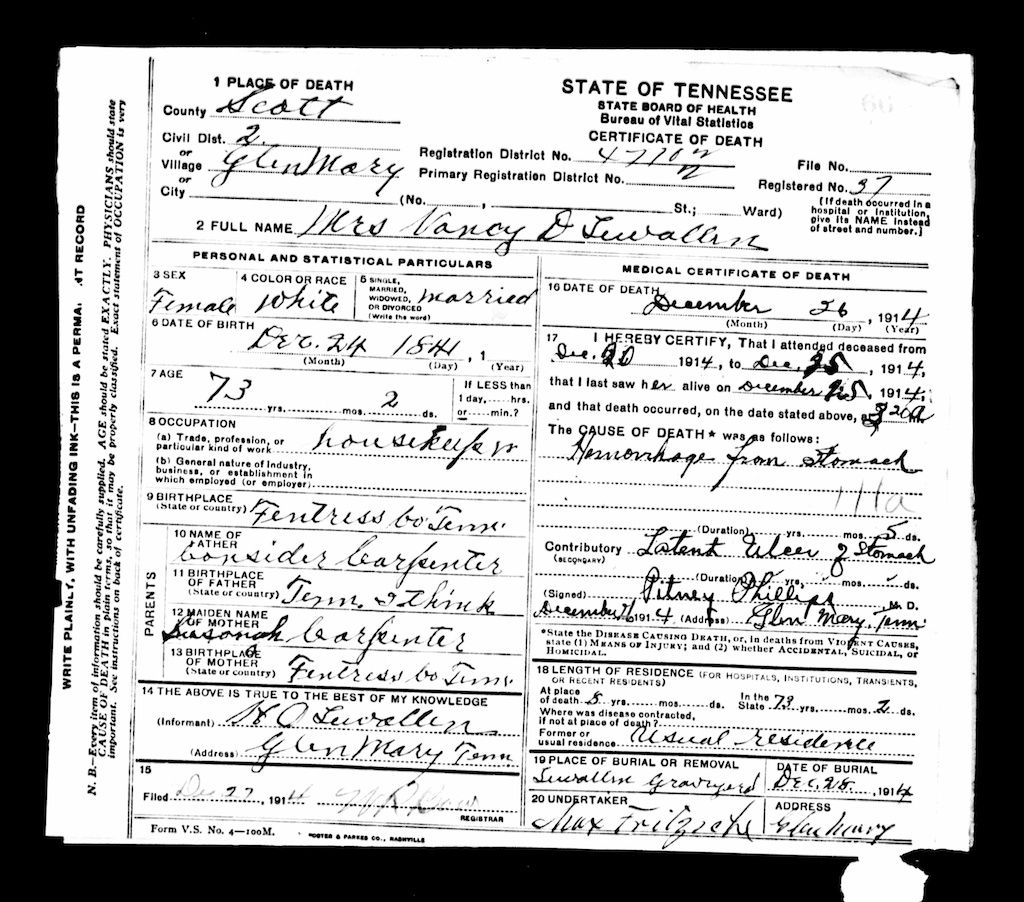 1 PLACE OF DEATH
County Scott
Civil Dist. 2
or
Village Glen Mary
or
City
(No. , St.; Ward)
STATE OF TENNESSEE
STATE BOARD OF HEALTH
Bureau of Vital Statistics
CERTIFICATE OF DEATH
Registration District No.
Primary Registration District No.
File No.
Registered No. 37
[If death occurred in a
hospital or institution,
give its NAME instead
of street and number.]
2 FULL NAME Mrs Nancy D Lewallen
PERSONAL AND STATISTICAL PARTICULARS
3 SEX
Female
4 COLOR OR RACE
White
5 SINGLE,
MARRIED,
WIDOWED,
OR DIVORCED
(Write the word)
married
6 DATE OF BIRTH
Dec. 24 1841, 1
(Month) (Day) (Year)
7 AGE
73 yrs. mos. 2 ds.
If LESS than
1 day, hrs.
or min.?
8 OCCUPATION
(a) Trade, profession, or
particular kind of work housekeeper
(b) General nature of industry,
business, or establishment in
which employed (or employer)
9 BIRTHPLACE
(State or country) Fentress Co Tenn.
PARENTS
10 NAME OF
FATHER
Consider Carpenter
11 BIRTHPLACE
OF FATHER
(State or country) Tenn. I think
12 MAIDEN NAME
OF MOTHER
Carpenter
13 BIRTHPLACE
OF MOTHER
(State or country) Fentress Co Tenn.
14 THE ABOVE IS TRUE TO THE BEST OF MY KNOWLEDGE
(Informant) Lewallen
(Address) Glen Mary Tenn
15
Filed Dec 27, 1914
REGISTRAR
MEDICAL CERTIFICATE OF DEATH
16 DATE OF DEATH
December 26, 1914
(Month) (Day) (Year)
17 I HEREBY CERTIFY, That I attended deceased from
Dec. 20 1914, to Dec. 25, 1914,
that I last saw her alive on December 25, 1914,
and that death occurred, on the date stated above, at 320 a m.
The CAUSE OF DEATH* was as follows:
Hemorrhage from Stomach
111a
(Duration) yrs. mos. 5 ds.
Contributory Latent Ulcer of Stomach
(SECONDARY)
(Duration) yrs. mos. ds.
(Signed) Pitney Phillips M. D.
December 26 1914 (Address) Glen Mary, Tenn.
*State the DISEASE CAUSING DEATH, or, in deaths from VIOLENT CAUSES,
state (1) MEANS OF INJURY; and (2) whether ACCIDENTAL, SUICIDAL, or
HOMICIDAL.
18 LENGTH OF RESIDENCE (FOR HOSPITALS, INSTITUTIONS, TRANSIENTS,
OR RECENT RESIDENTS)
At place
of death 8 yrs. mos. ds.
In the
State 73 yrs. mos. 2 ds.
Where was disease contracted,
if not at place of death?
Former or
usual residence Usual residence
19 PLACE OF BURIAL OR REMOVAL
Lewallen Graveyard
DATE OF BURIAL
Dec. 28, 1914
20 UNDERTAKER
Max Fritzsche
ADDRESS
Glen Mary
Form V. S. No. 4—100M.
FOSTER & PARKES CO., NASHVILLE
WRITE PLAINLY, WITH UNFADING INK—THIS IS A PERMA NT RECORD
N. B.—Every item of information should be carefully supplied. AGE should be stated EXACTLY. PHYSICIANS should state
CAUSE OF DEATH in plain terms, so that it may be properly classified. Exact statement of OCCUPATION is very
important. See instructions on back of certificate.